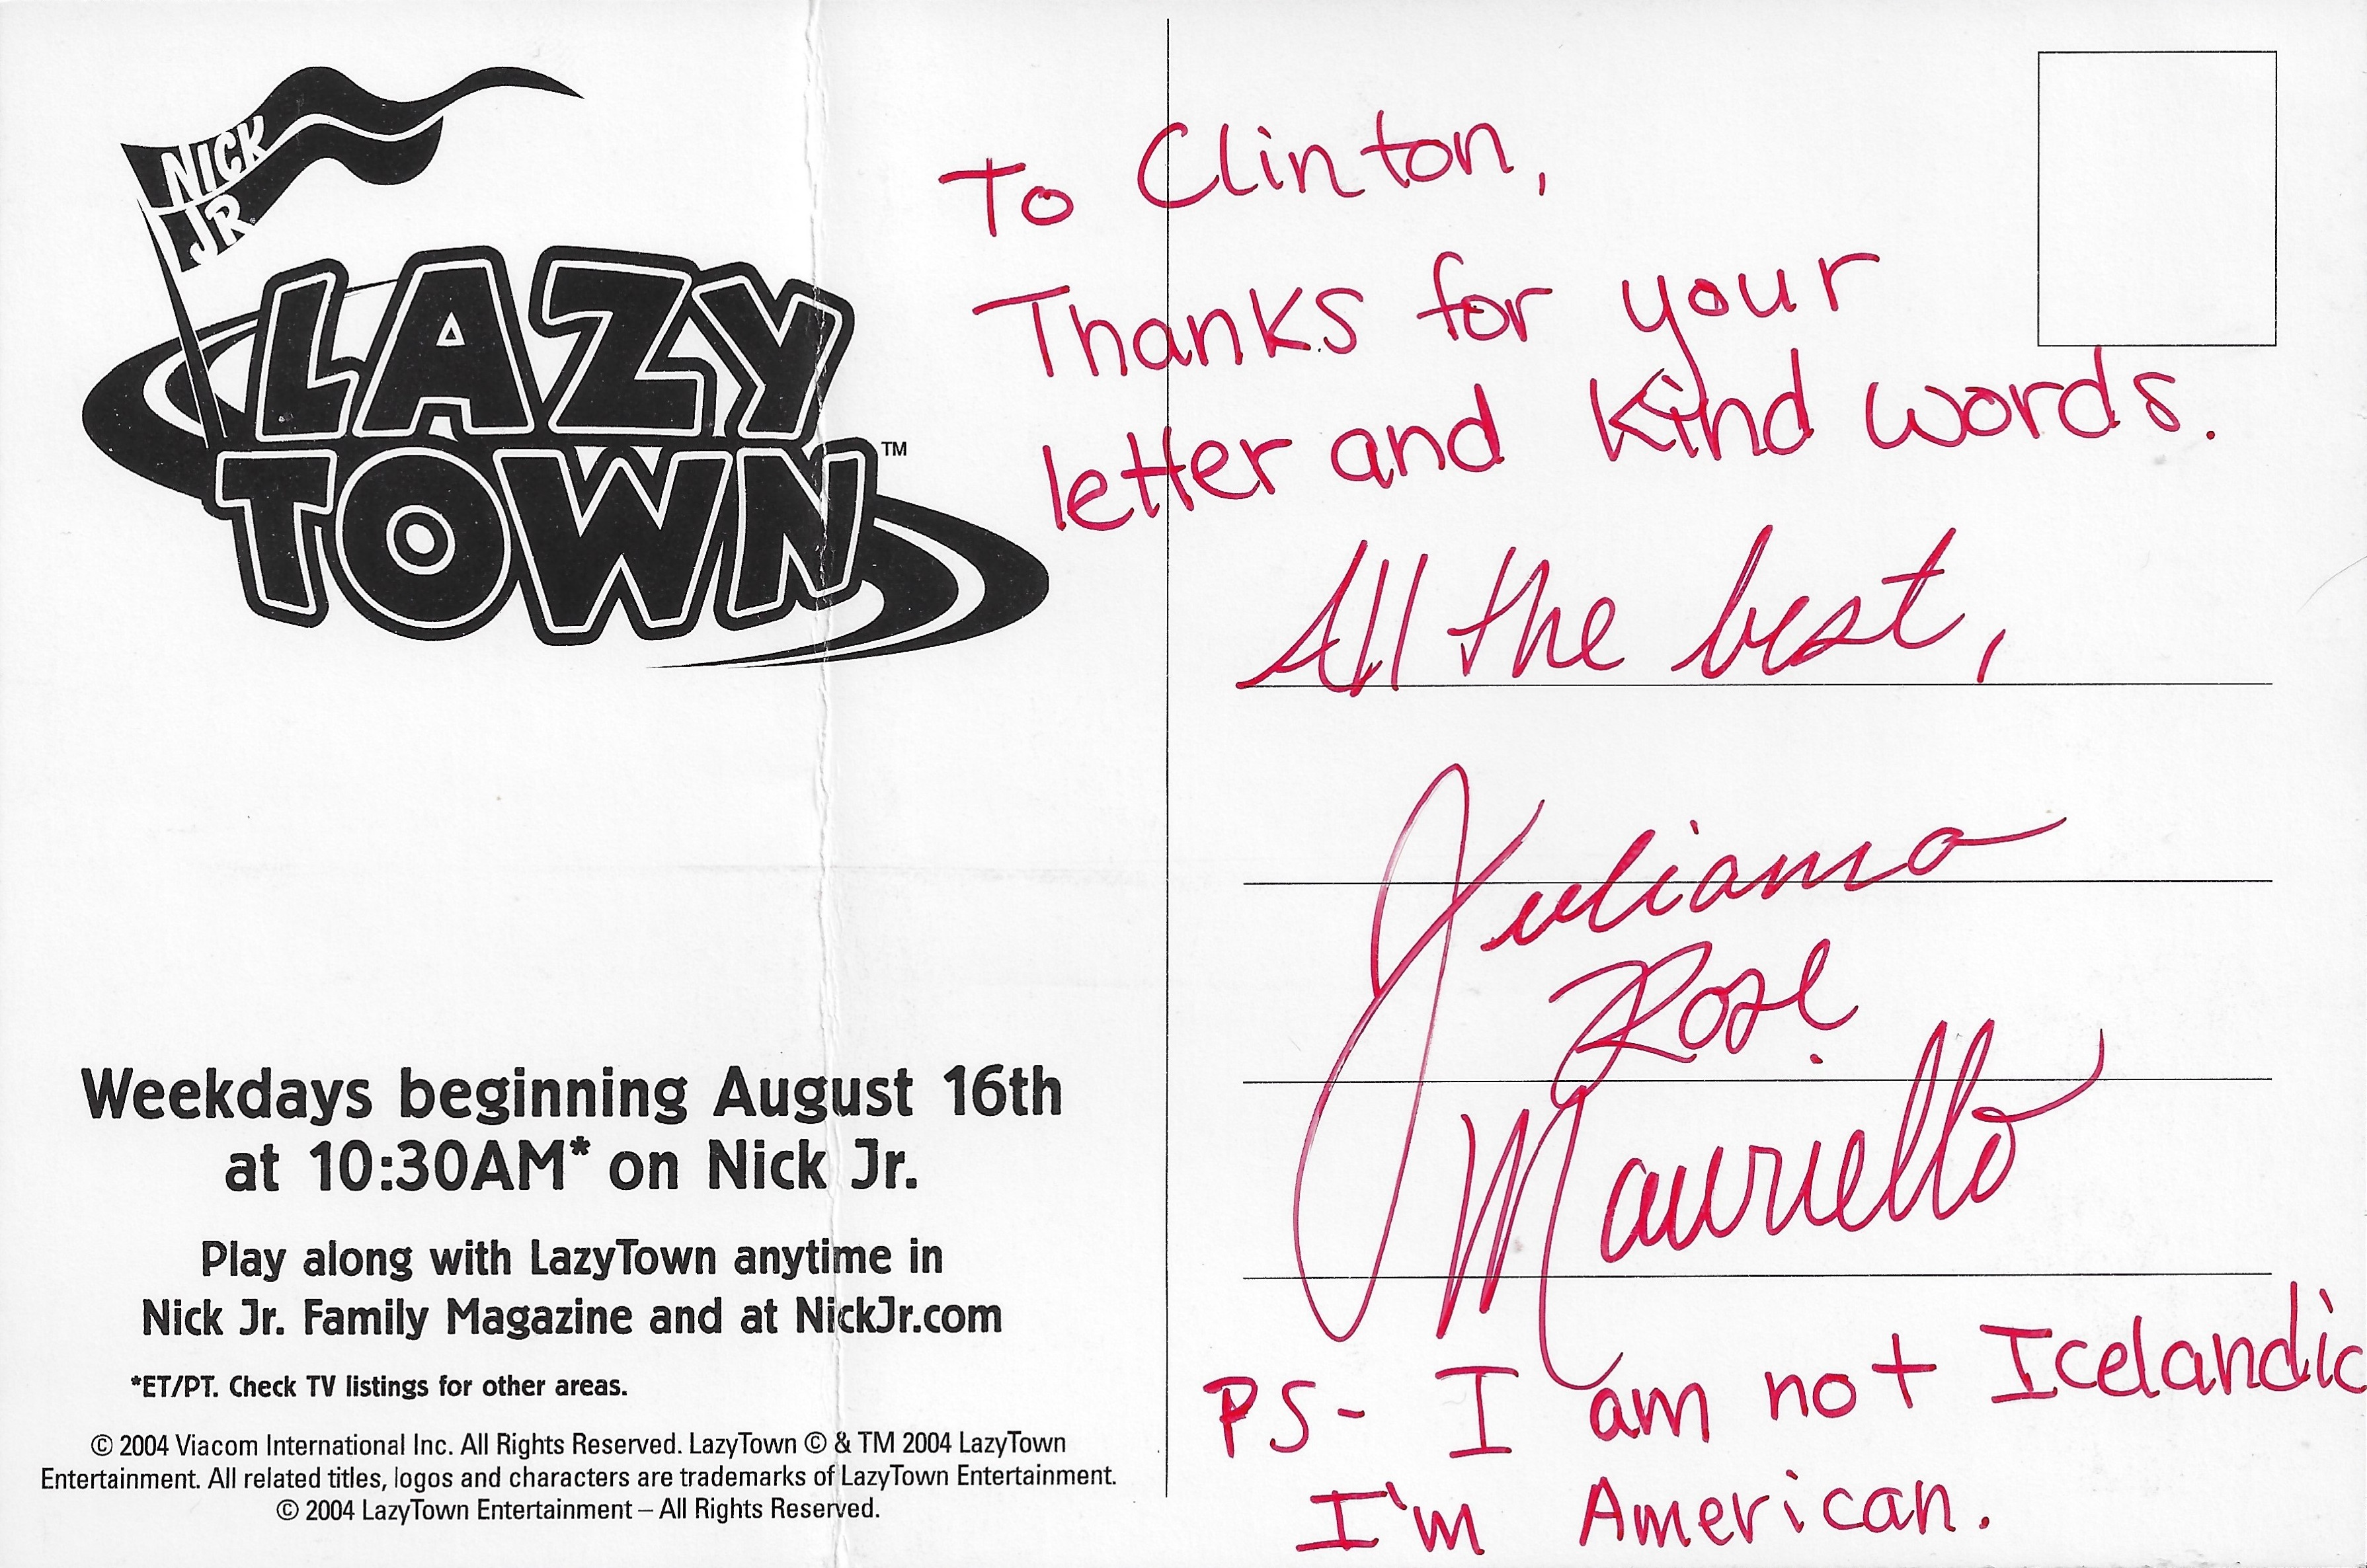 NICK
JR.
LAZY
TOWN™
Weekdays beginning August 16th
at 10:30AM* on Nick Jr.
Play along with LazyTown anytime in
Nick Jr. Family Magazine and at NickJr.com
*ET/PT. Check TV listings for other areas.
© 2004 Viacom International Inc. All Rights Reserved. LazyTown © & TM 2004 LazyTown
Entertainment. All related titles, logos and characters are trademarks of LazyTown Entertainment.
© 2004 LazyTown Entertainment – All Rights Reserved.
To Clinton,
Thanks for your
letter and kind words.
All the best,
Julianna
Rose
Mauriello
PS- I am not Icelandic
I'm American.